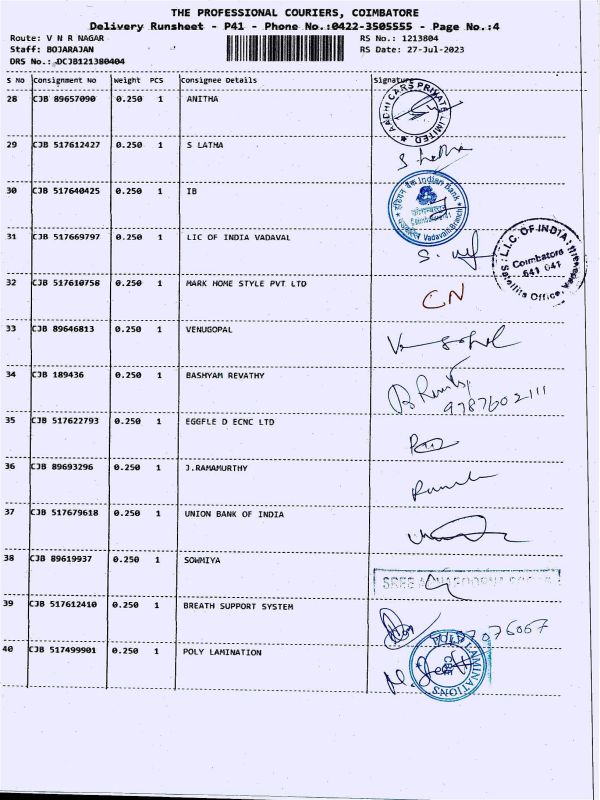 THE PROFESSIONAL COURIERS, COIMBATORE
Delivery Runsheet - P41 - Phone No.:0422-3505555 - Page No.:4
Route: V N R NAGAR RS No.: 1213804
Staff: BOJARAJAN RS Date: 27-Jul-2023
DRS No.: DCJB121380404
S No Consignment No Weight PCS Consignee Details Signature
28 CJB 89657090 0.250 1 ANITHA
AADHI CARS PRIVATE LIMITED.
29 CJB 517612427 0.250 1 S LATHA
30 CJB 517640425 0.250 1 IB
इंडियन बैंक Indian Bank
Vadavalli Branch
31 CJB 517669797 0.250 1 LIC OF INDIA VADAVAL
L.I.C. OF INDIA
Coimbatore
641 041
Satellite Office,
32 CJB 517610758 0.250 1 MARK HOME STYLE PVT LTD
CN
33 CJB 89646813 0.250 1 VENUGOPAL
34 CJB 189436 0.250 1 BASHYAM REVATHY
9787602111
35 CJB 517622793 0.250 1 EGGFLE D ECNC LTD
36 CJB 89693296 0.250 1 J.RAMAMURTHY
37 CJB 517679618 0.250 1 UNION BANK OF INDIA
38 CJB 89619937 0.250 1 SOWMIYA
39 CJB 517612410 0.250 1 BREATH SUPPORT SYSTEM
40 CJB 517499901 0.250 1 POLY LAMINATION
POLY LAMINATIONS